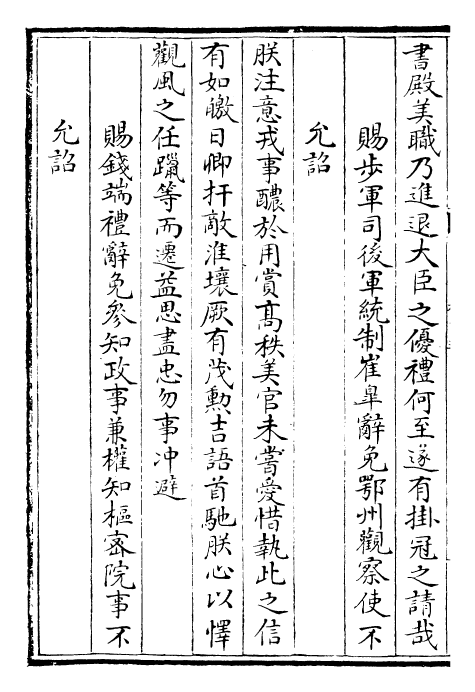 書殿美職乃進退大臣之優禮何至遂有掛冠之請哉
賜步軍司後軍統制崔臯辭免鄂州觀察使不
允詔
朕注意戎事醲於用賞髙秩美官未嘗愛惜執此之信
有如皦日卿扞敵淮壖厥有茂勲吉語首馳朕心以懌
觀風之任躐等而遷益思盡忠勿事冲避
賜錢端禮辭免參知政事兼權知樞宻院事不
允詔